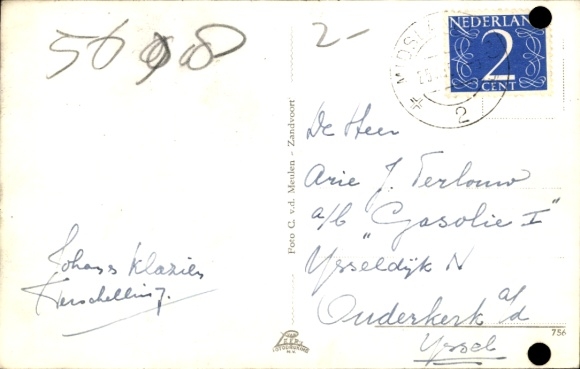 5698
2-
NEDERLAND
2
CENT
MIDSL
2
De Heer
Arie J. Terlouw
a/b "Gasolie I"
Ysseldijk N
Ouderkerk a/d
Yssel
Johans Klazien
Terschelling.
Foto C. v.d. Meulen - Zandvoort
756